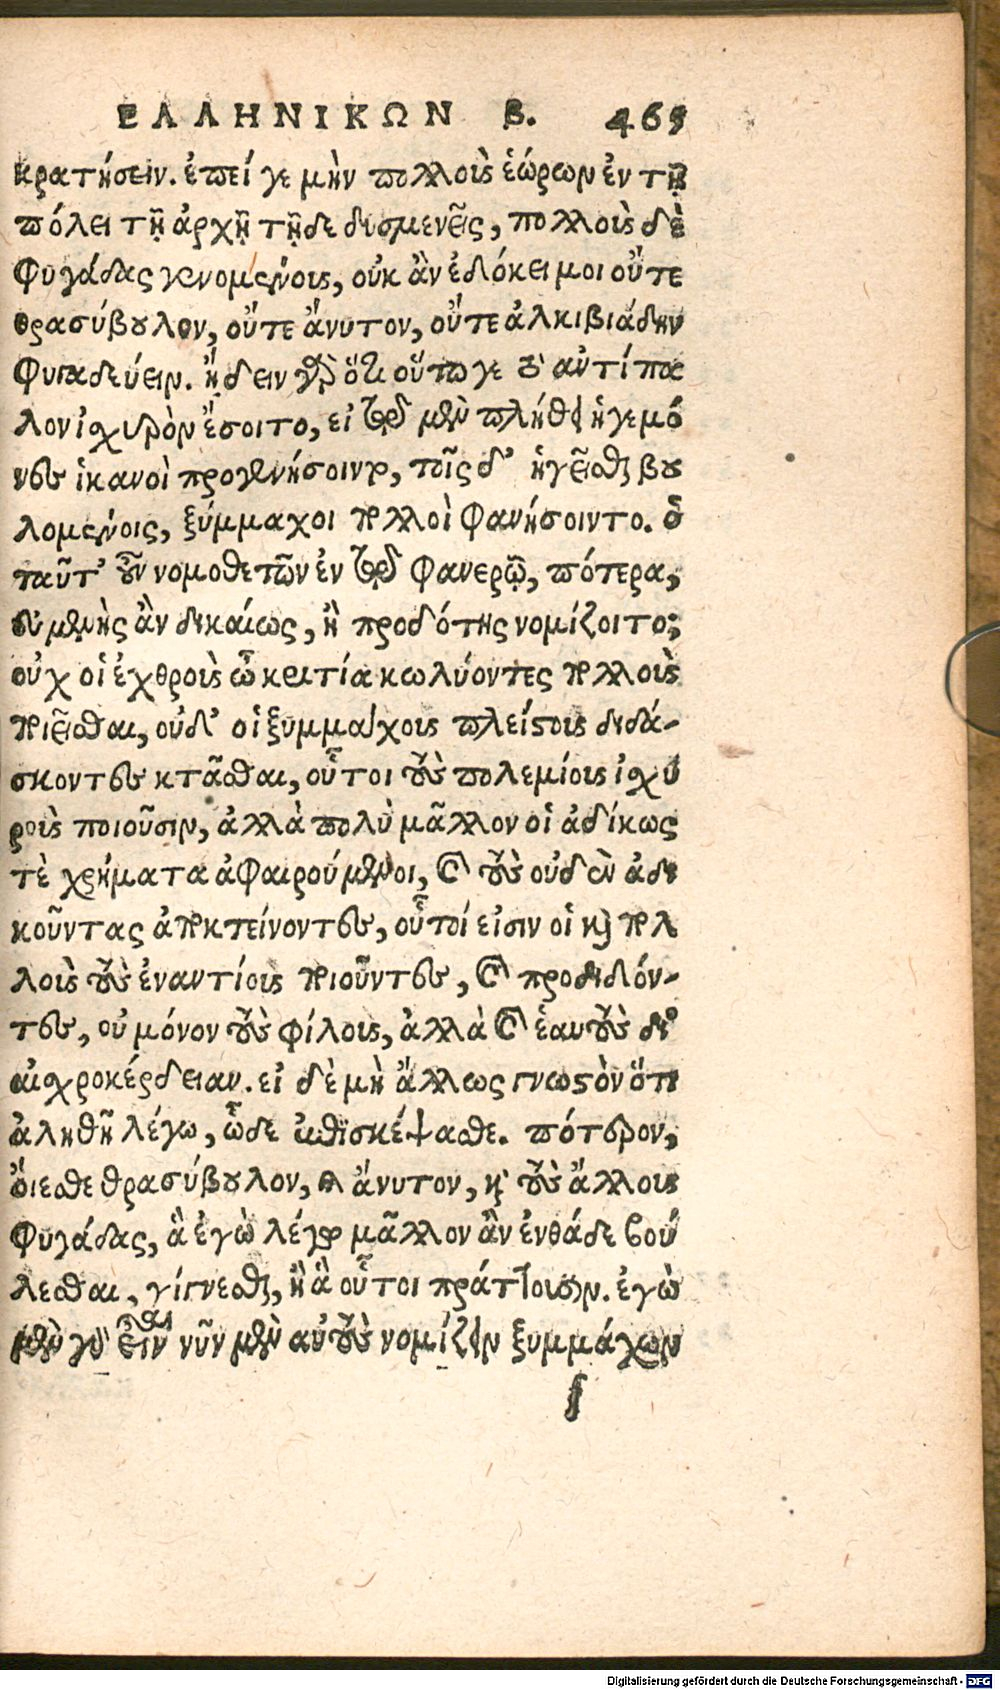 ΕΛΛΗΝΙΚΩΝ Β. 465
κρατήσειν. ἐπεί γε μὴν πολλοὺς ἑώρων ἐν τῇ
πόλει τῇ ἀρχῇ τῇδε δυσμενεῖς, πολλοὺς δὲ
φυγάδας γενομένους, οὐκ ἂν ἐδόκει μοι οὔτε
θρασύβουλον, οὔτε ἄνυτον, οὔτε ἀλκιβιάδην
φυγαδεύειν. ᾔδειν γὰρ ὅτι οὕτω γε τὸ ἀντίπα
λον ἰσχυρὸν ἔσοιτο, εἰ τῷ μὲν πλήθει ἡγεμό
νες ἱκανοὶ προγενήσοιντο, τοῖς δ' ἡγεῖσθαι βου
λομένοις, ξύμμαχοι πολλοὶ φανήσοιντο. ὁ
ταῦτ' οὖν νομοθετῶν ἐν τῷ φανερῷ, πότερα,
εὐμενὴς ἂν δικαίως, ἢ προδότης νομίζοιτο;
οὐχ οἱ ἐχθροὺς ὦ κριτία κωλύοντες πολλοὺς
ποιεῖσθαι, οὐδ' οἱ ξυμμάχους πλείστους διδά-
σκοντες κτᾶσθαι, οὗτοι τοὺς πολεμίους ἰσχυ
ροὺς ποιοῦσιν, ἀλλὰ πολὺ μᾶλλον οἱ ἀδίκως
τὲ χρήματα ἀφαιρούμενοι, καὶ τοὺς οὐδὲν ἀδι
κοῦντας ἀποκτείνοντες, οὗτοί εἰσιν οἱ καὶ πολ
λοὺς τοὺς ἐναντίους ποιοῦντες, καὶ προδιδόν-
τες, οὐ μόνον τοὺς φίλους, ἀλλὰ καὶ ἑαυτοὺς δι'
αἰσχροκέρδειαν. εἰ δὲ μὴ ἄλλως γνωστὸν ὅτι
ἀληθῆ λέγω, ὧδε ἐπισκέψασθε. πότερον,
οἴεσθε θρασύβουλον, καὶ ἄνυτον, καὶ τοὺς ἄλλους
φυγάδας, ἃ ἐγὼ λέγω μᾶλλον ἂν ἐνθάδε βού
λεσθαι, γίγνεσθαι, ἢ ἃ οὗτοι πράττουσιν. ἐγὼ
μὲν γὰρ νῦν μὲν αὐτοὺς νομίζειν ξυμμάχων
f
Digitalisierung gefördert durch die Deutsche Forschungsgemeinschaft - DFG